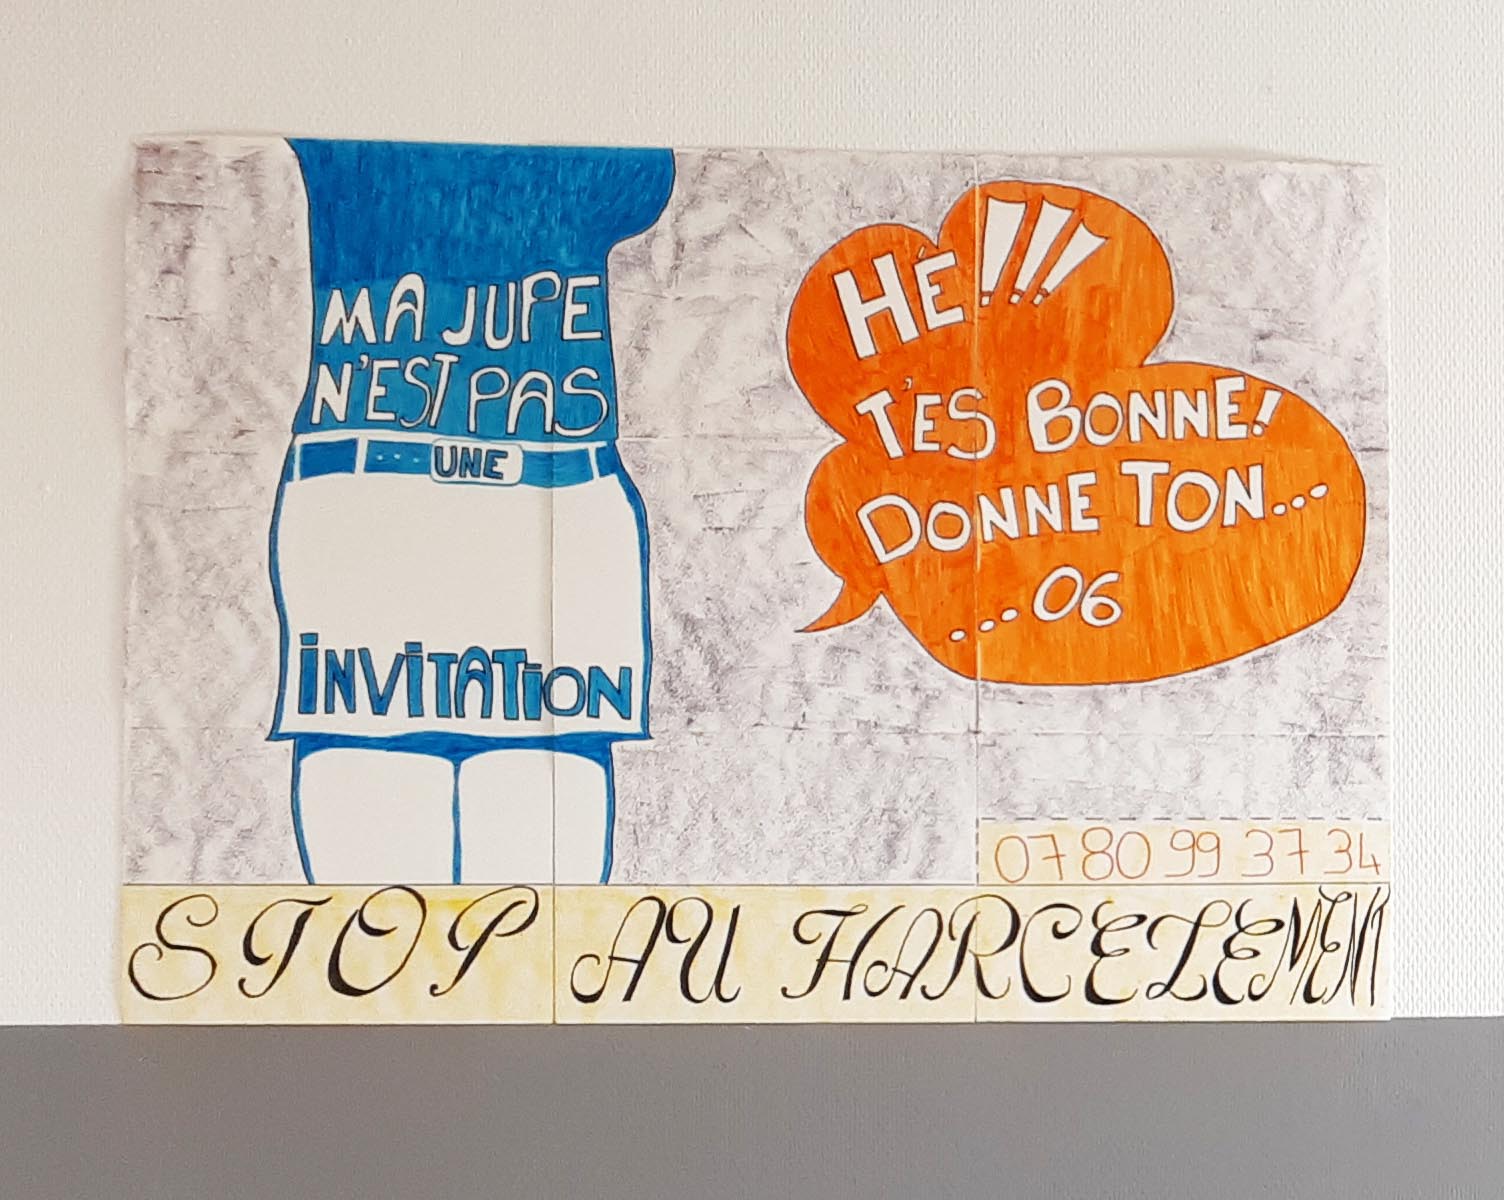 MA JUPE
N'EST PAS
UNE
INVITATION
HÉ!!!
T'ES BONNE!
DONNE TON...
...06
07 80 99 37 34
STOP AU HARCELEMENT